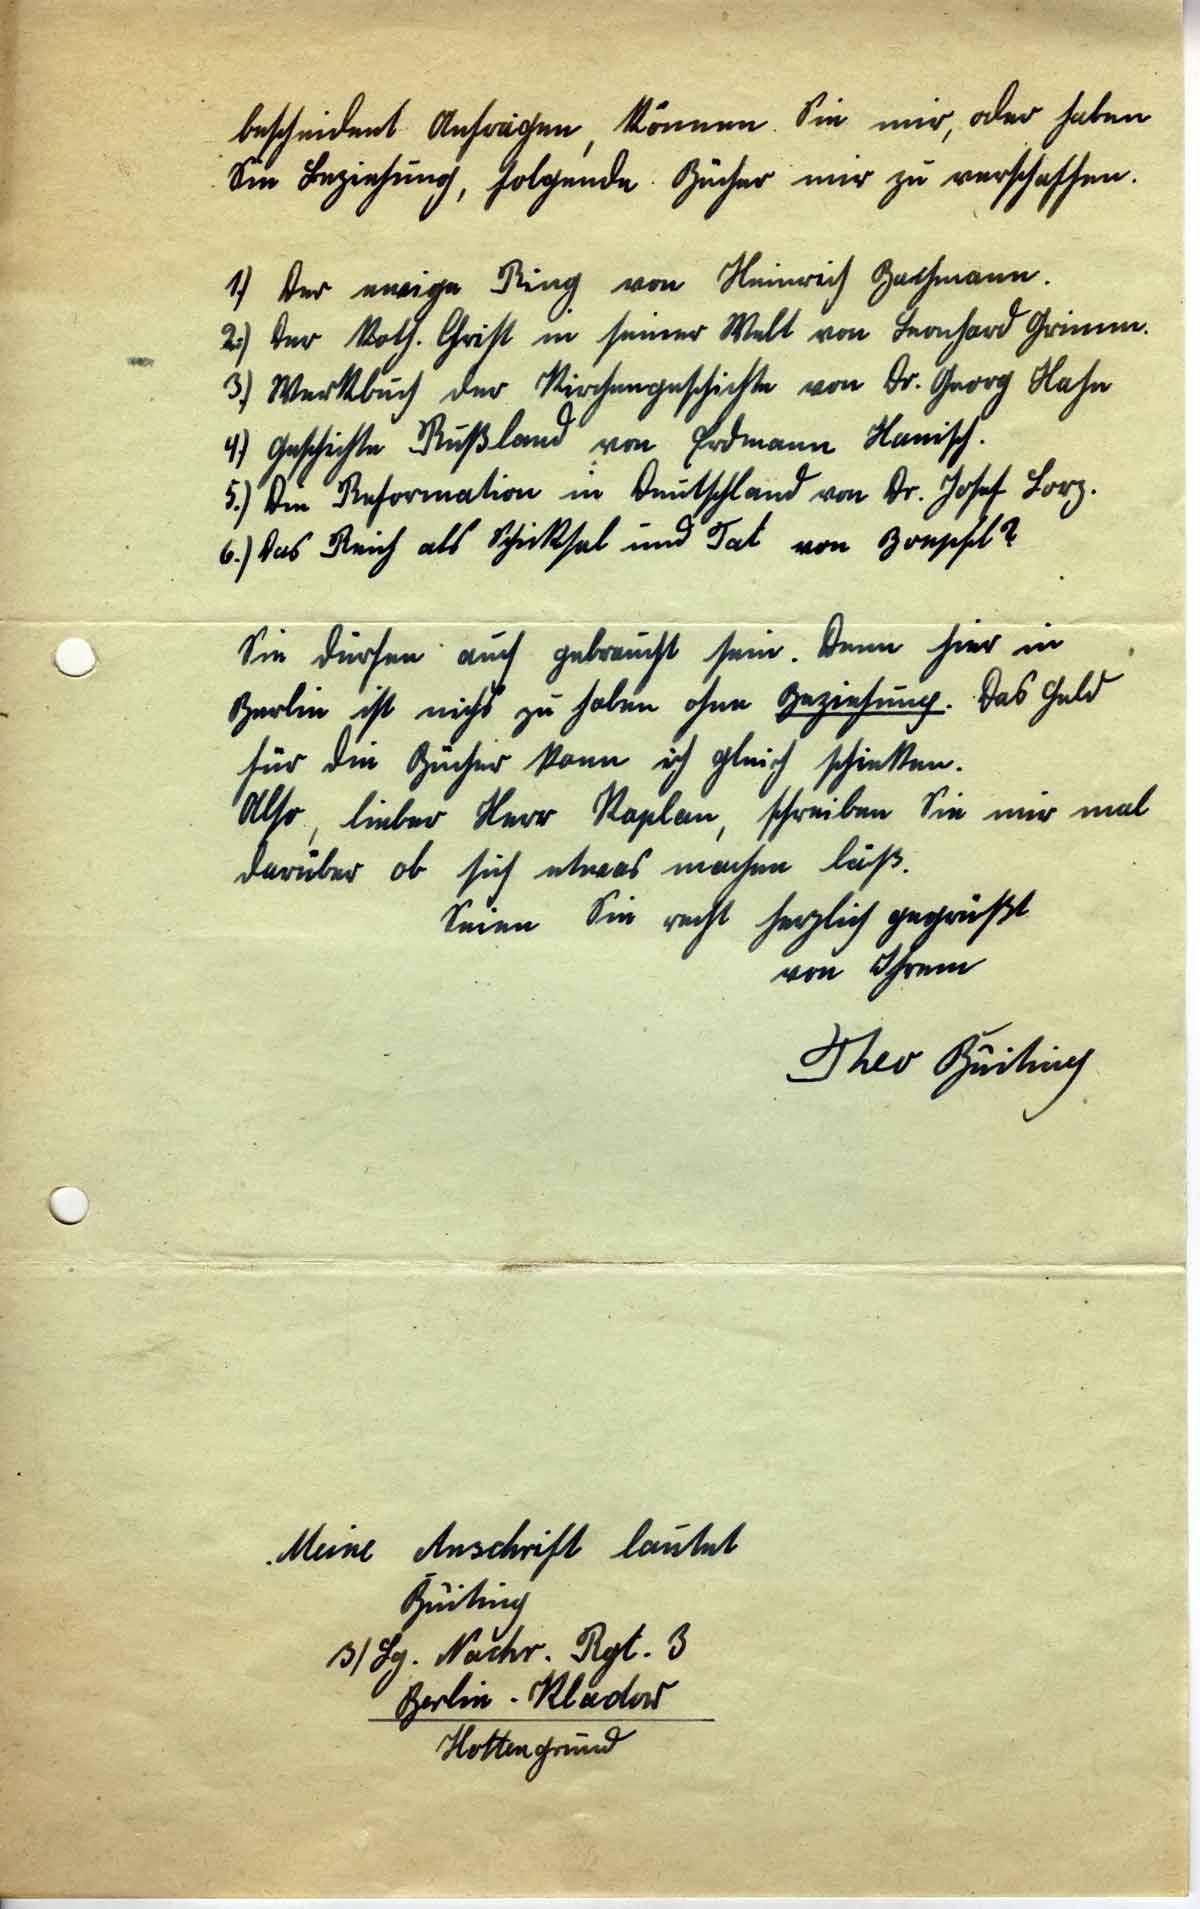 bescheident Anfragen, können Sie mir, oder haben
Sie Beziehung, folgende Bücher mir zu verschaffen.
1.) Der ewige Ring von Heinrich Bachmann.
2.) Der Kath. Christ in seiner Welt von Leonhard Grimm.
3.) Werkbuch der Kirchengeschichte von Dr. Georg Hahn
4.) Geschichte Rußland von Erdmann Hanisch.
5.) Die Reformation in Deutschland von Dr. Josef Lorz.
6.) Das Reich als Schicksal und Tat von Zoepfl?
Sie dürfen auch gebraucht sein. Denn hier in
Berlin ist nichs zu haben ohne Beziehung. Das Geld
für die Bücher kann ich gleich schicken.
Also, lieber Herr Kaplan, schreiben Sie mir mal
darüber ob sich etwas machen läß.
Seien Sie recht herzlich gegrüßt
von Ihrem
Theo Büiting
Meine Anschrift lautet
Büiting
3/Lg. Nachr. Rgt. 3
Berlin - Kladow
Hottengrund